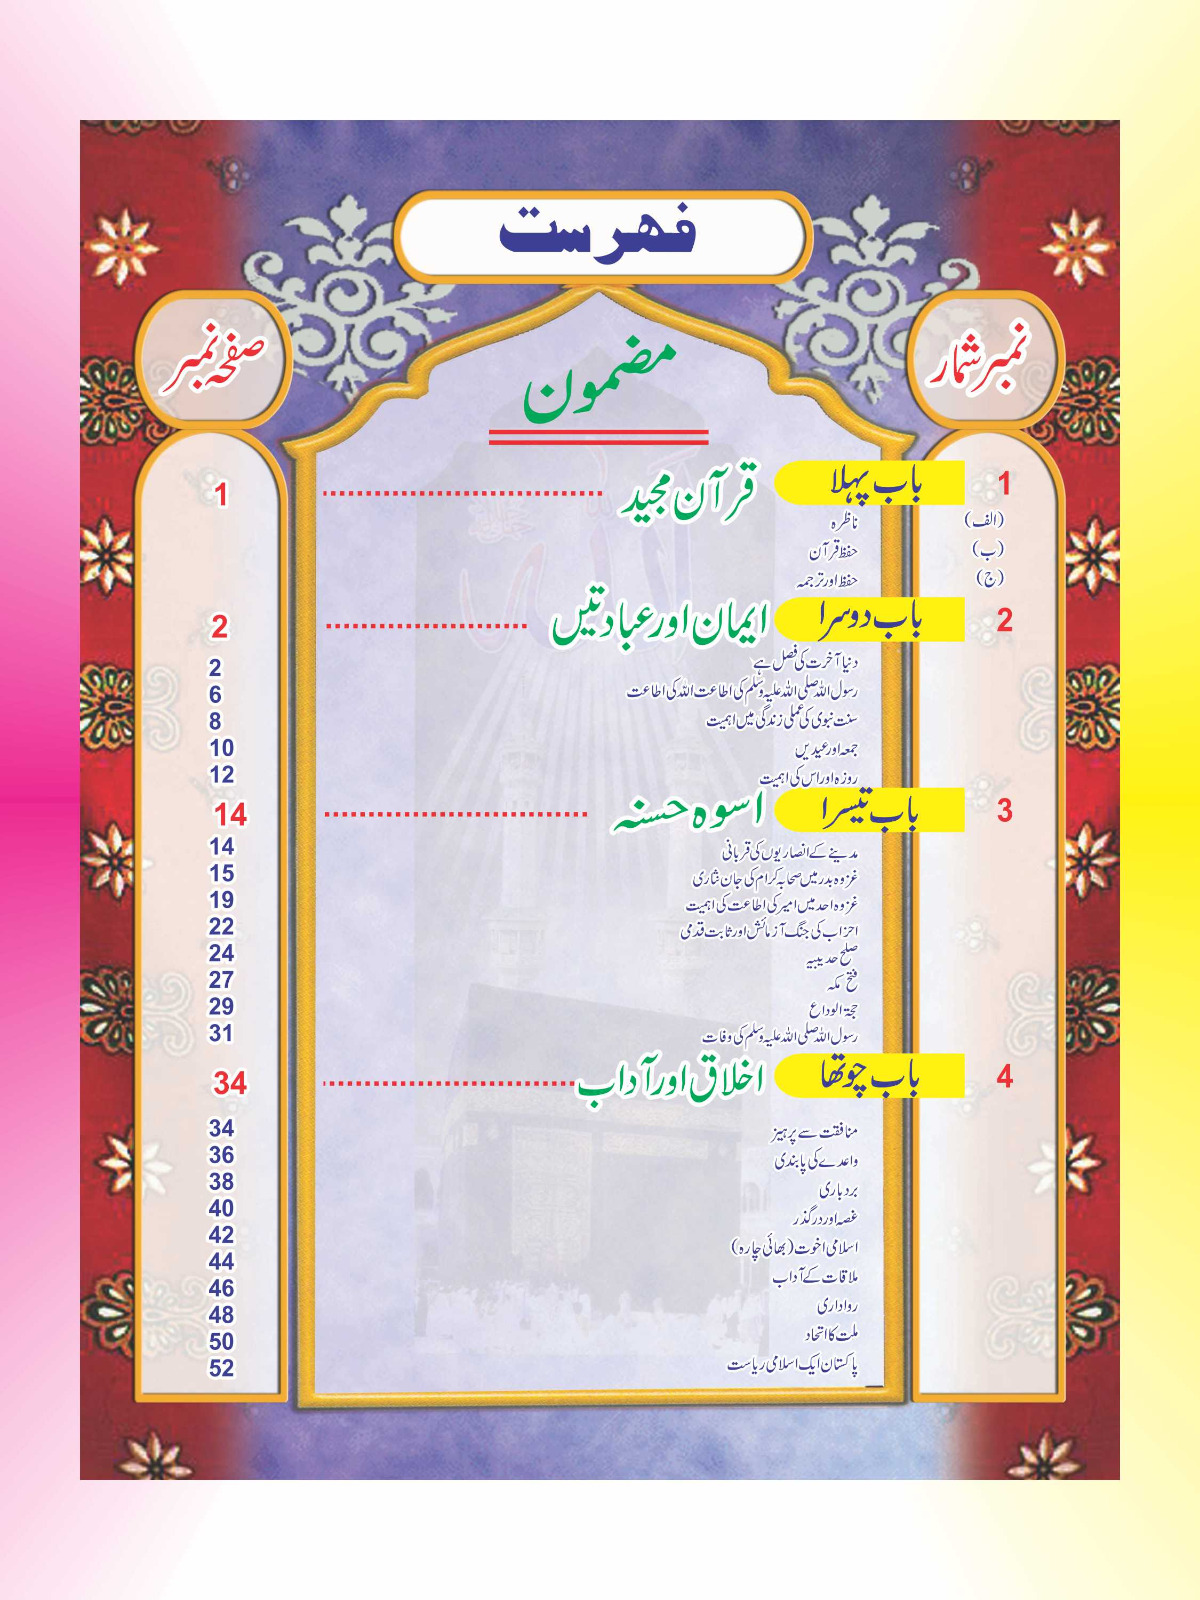 فہرست
نمبر شمار مضمون صفحہ نمبر
1 باب پہلا قرآن مجید 1
(الف) ناظرہ
(ب) حفظ قرآن
(ج) حفظ اور ترجمہ
2 باب دوسرا ایمان اور عبادتیں 2
دنیا آخرت کی فصل ہے 2
رسول اللہ صلی اللہ علیہ وسلم کی اطاعت اللہ کی اطاعت 6
سنت نبوی کی عملی زندگی میں اہمیت 8
جمعہ اور عیدیں 10
روزہ اور اس کی اہمیت 12
3 باب تیسرا اسوہ حسنہ 14
مدینے کے انصاریوں کی قربانی 14
غزوہ بدر میں صحابہ کرام کی جان نثاری 15
غزوہ احد میں امیر کی اطاعت کی اہمیت 19
احزاب کی جنگ آزمائش اور ثابت قدمی 22
صلح حدیبیہ 24
فتح مکہ 27
حجۃ الوداع 29
رسول اللہ صلی اللہ علیہ وسلم کی وفات 31
4 باب چوتھا اخلاق اور آداب 34
منافقت سے پرہیز 34
واعدے کی پابندی 36
بردباری 38
غصہ اور درگذر 40
اسلامی اخوت (بھائی چارہ) 42
ملاقات کے آداب 44
رواداری 46
ملت کا اتحاد 48
پاکستان ایک اسلامی ریاست 50
52